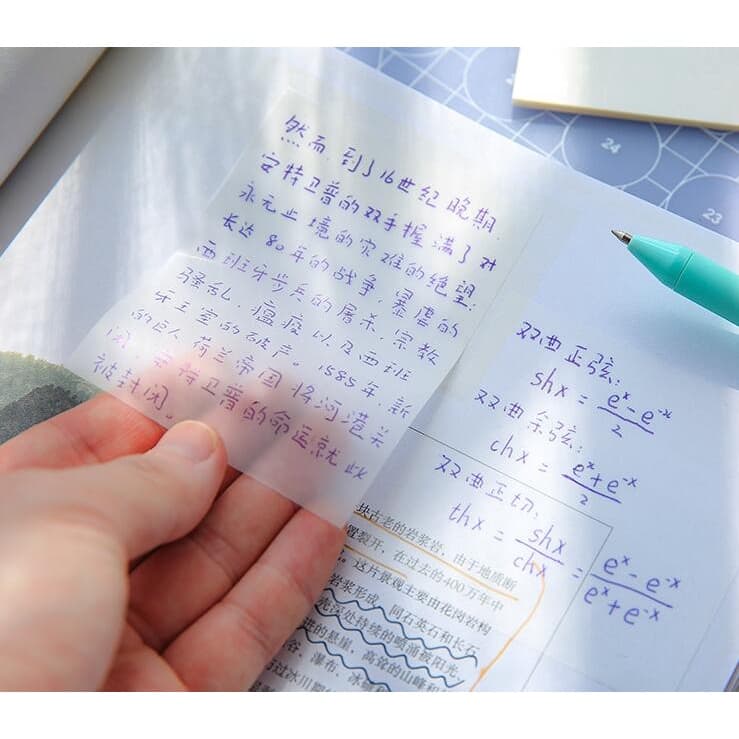 然而,到了16世纪晚期
安特卫普的双手握满了对
永无止境的灾难的绝望:
长达80年的战争,暴虐的
西班牙步兵的屠杀,宗教
骚乱,瘟疫以及西班
牙王室的破产。1585年,新
的巨人荷兰帝国将河港关
闭,安特卫普的命运就此
被封闭。
24
23
双曲正弦:
shx = (e^x - e^-x)/2
双曲余弦:
chx = (e^x + e^-x)/2
双曲正切:
thx = shx/chx = (e^x - e^-x)/(e^x + e^-x)
块古老的岩浆岩，由于地质断
裂开，在过去的400万年中
这片景观主要由花岗岩构
岩浆形成，同石英石和长石
表深处持续的喷涌被阳光、
的悬崖，高耸的山峰和
谷、瀑布、冰
过冰川期